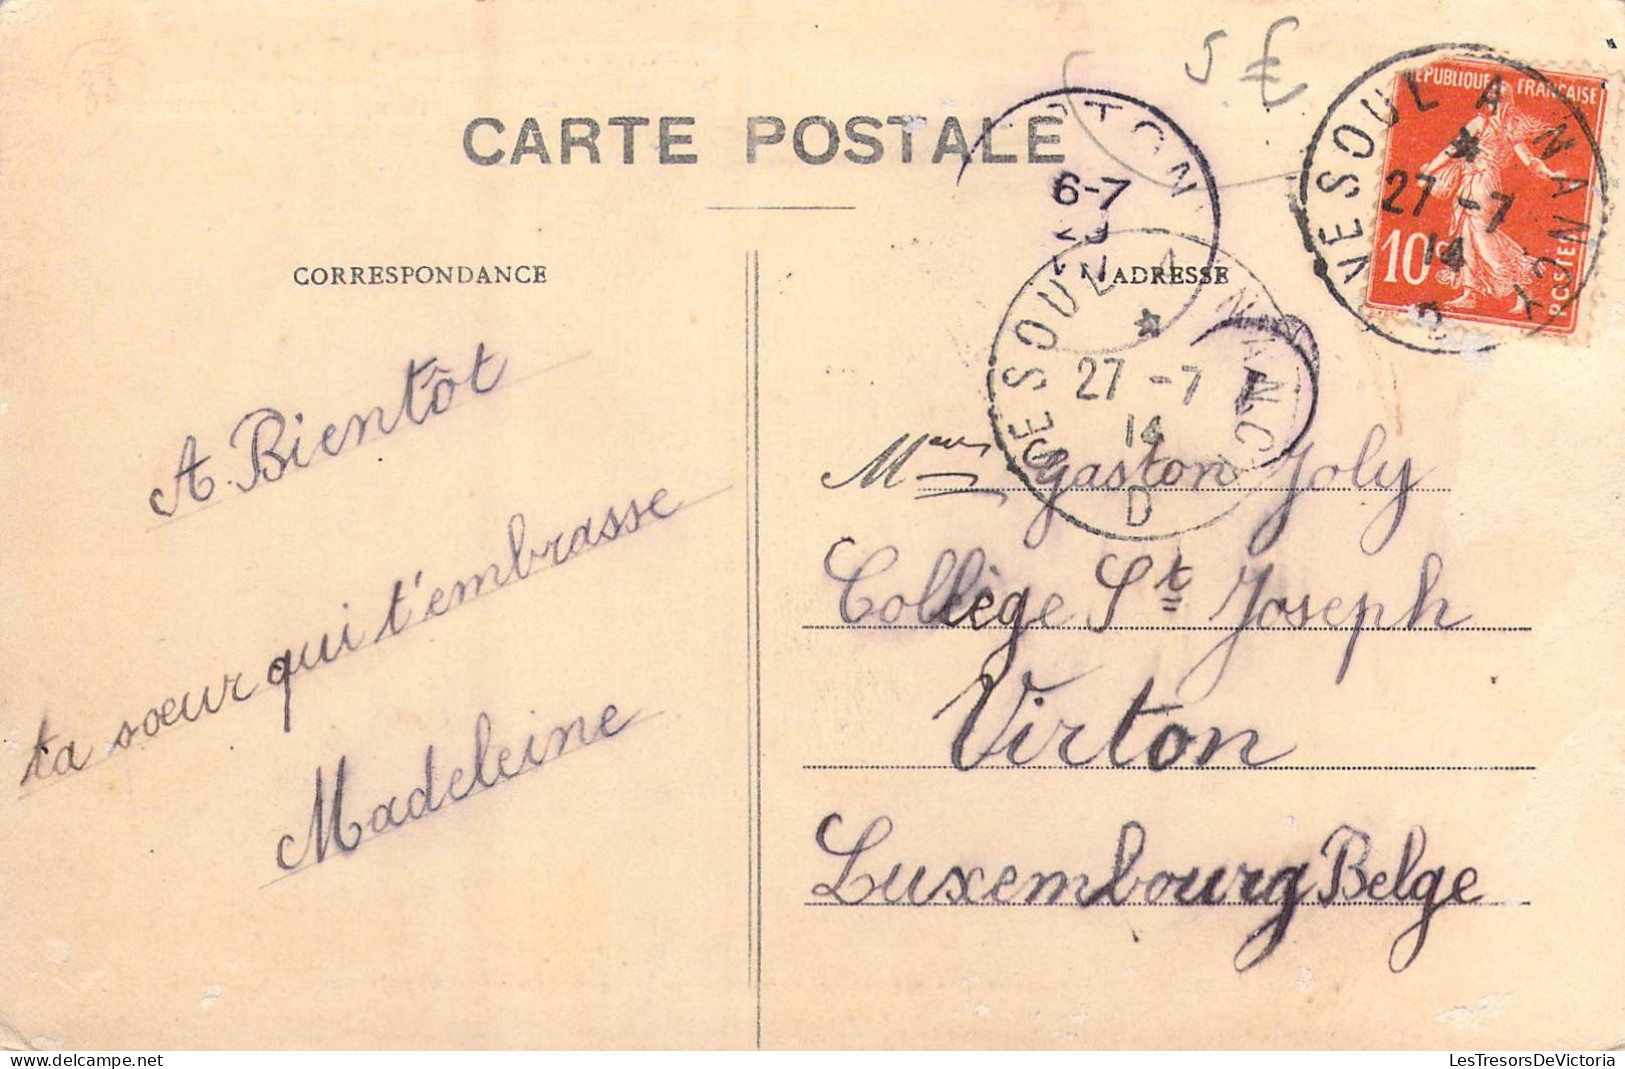 88
5 €
CARTE POSTALE
CORRESPONDANCE
ADRESSE
RÉPUBLIQUE FRANÇAISE
10c
POSTES
VESOUL A NANCY
27 -7
14
TON
6-7
VESOUL A NANC
27 -7
14
D
A Bientôt
ta sœur qui t'embrasse
Madeleine
Gaston Joly
Collège St Joseph
Virton
Luxembourg Belge
LesTresorsDeVictoria
delcampe.net